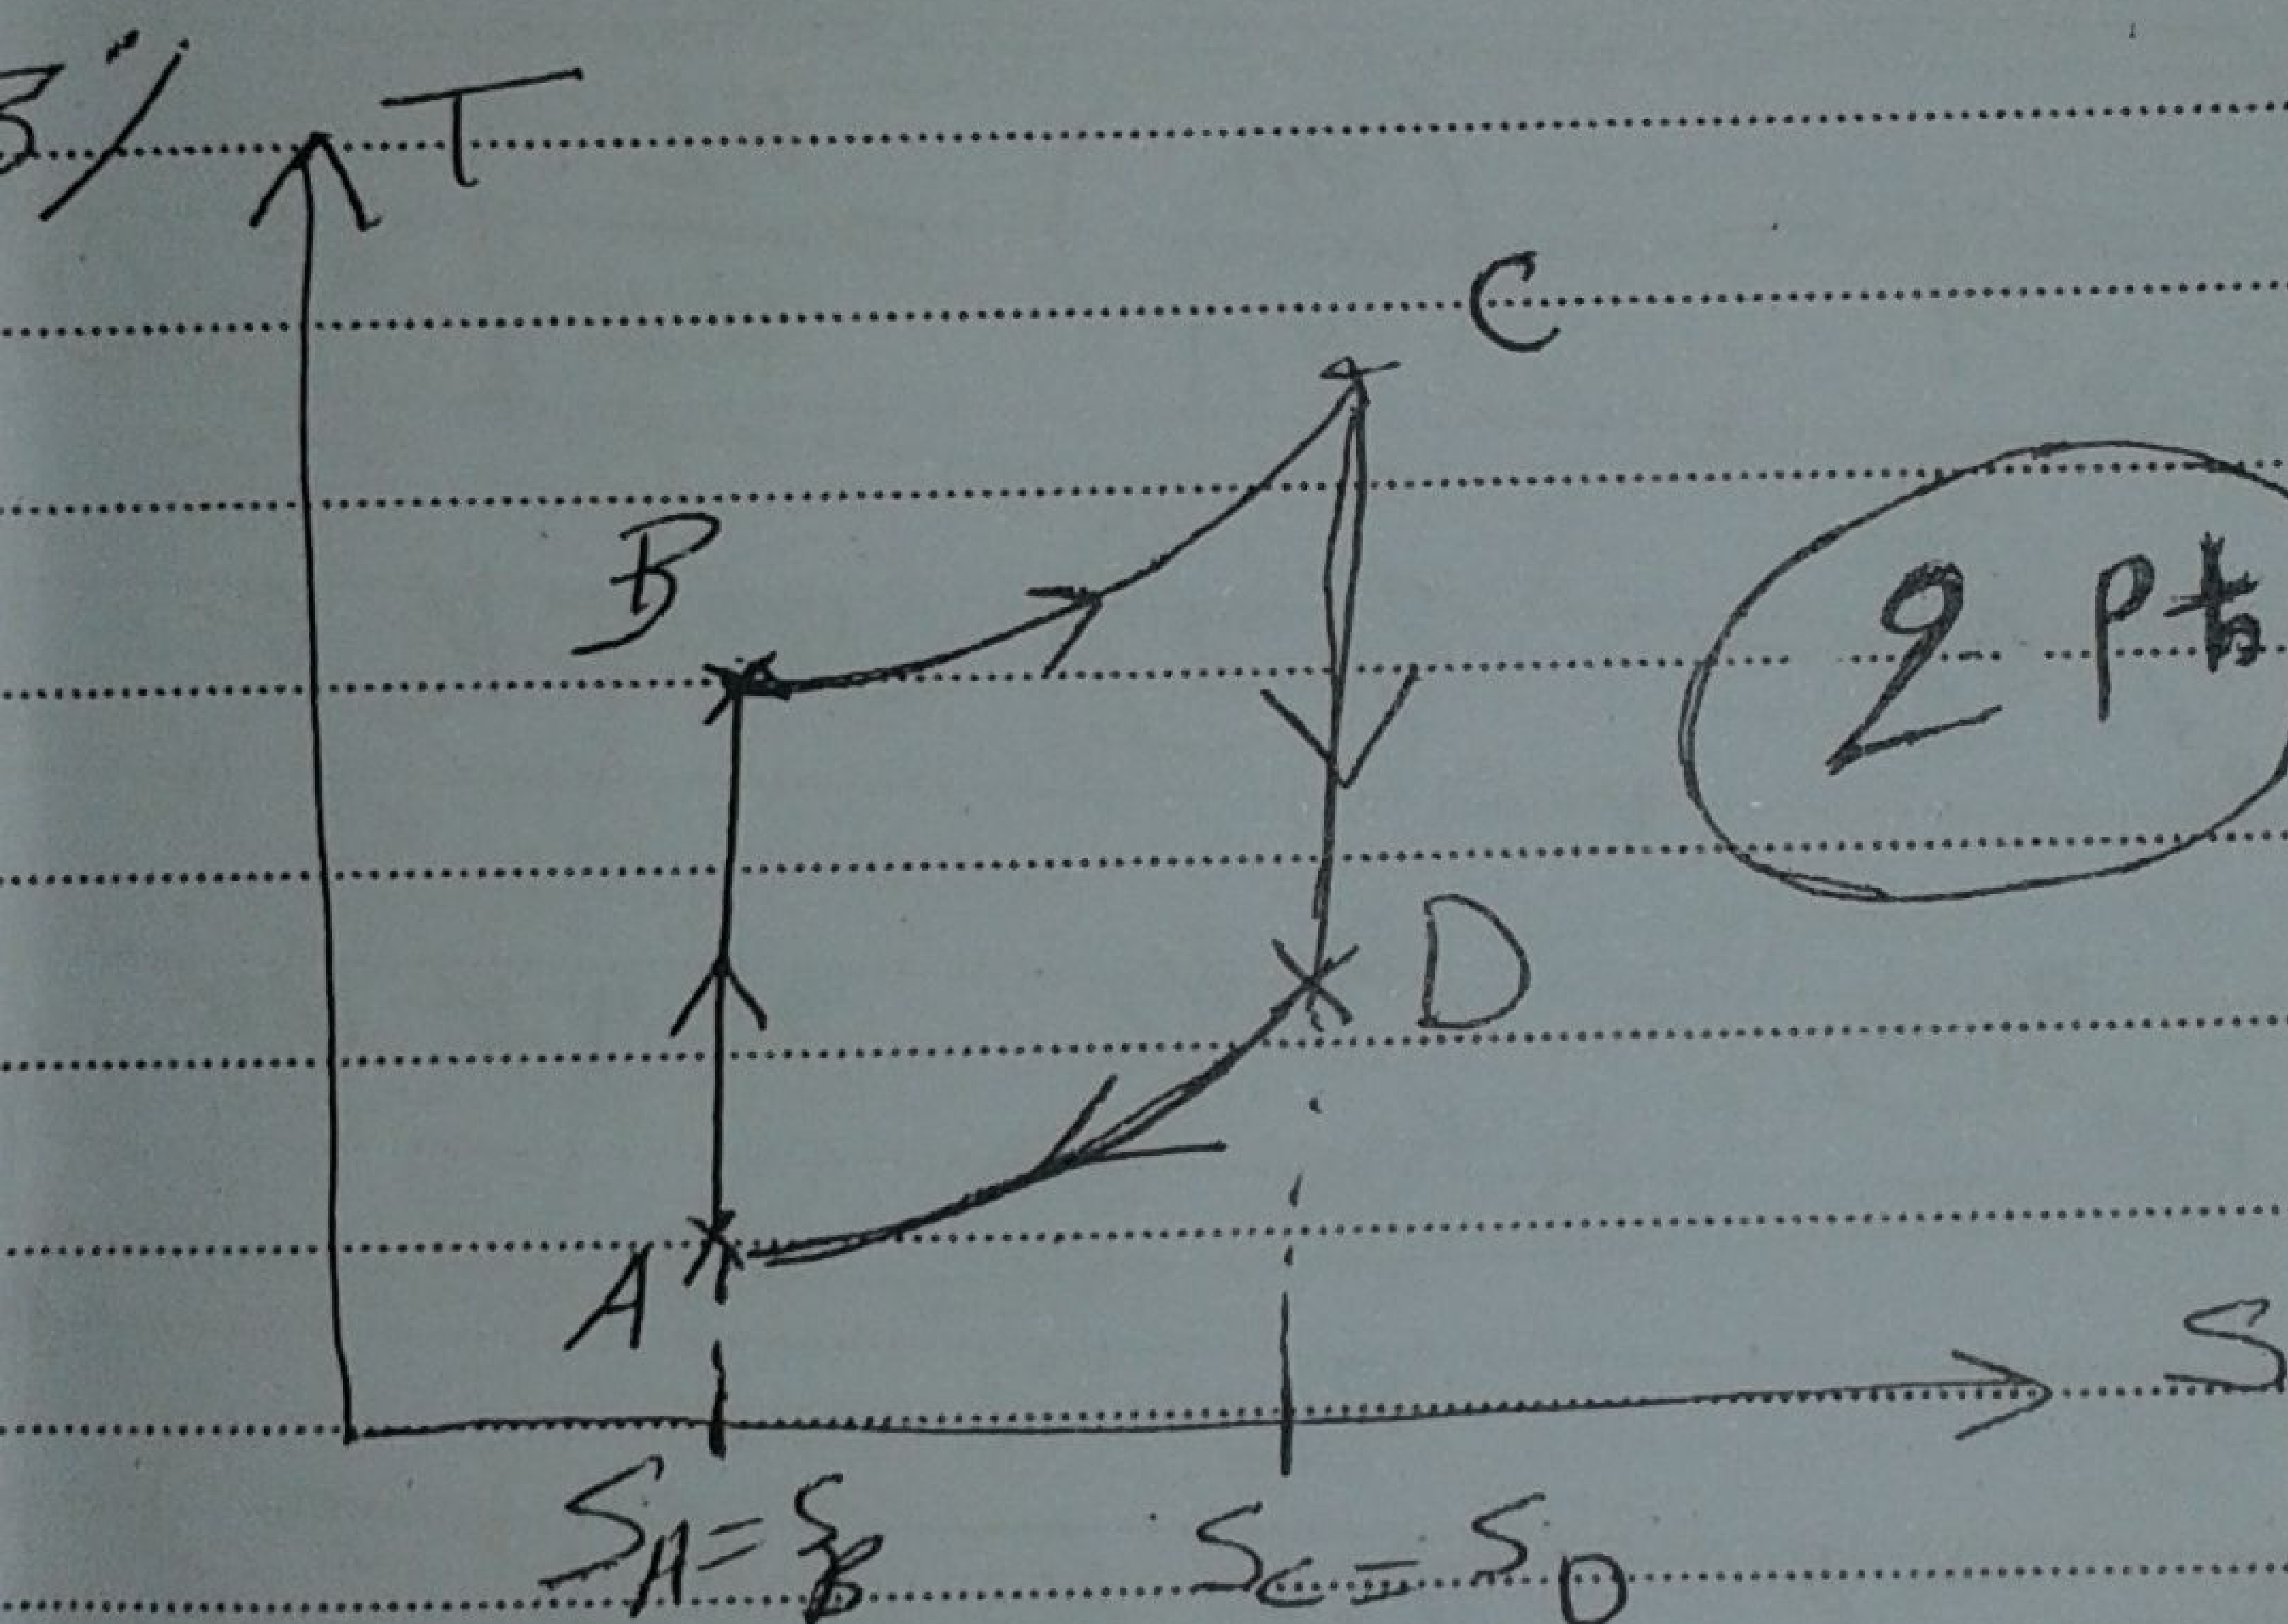 3°/ T
C
B
2 pts
D
A
S
SA = SB
SC = SD